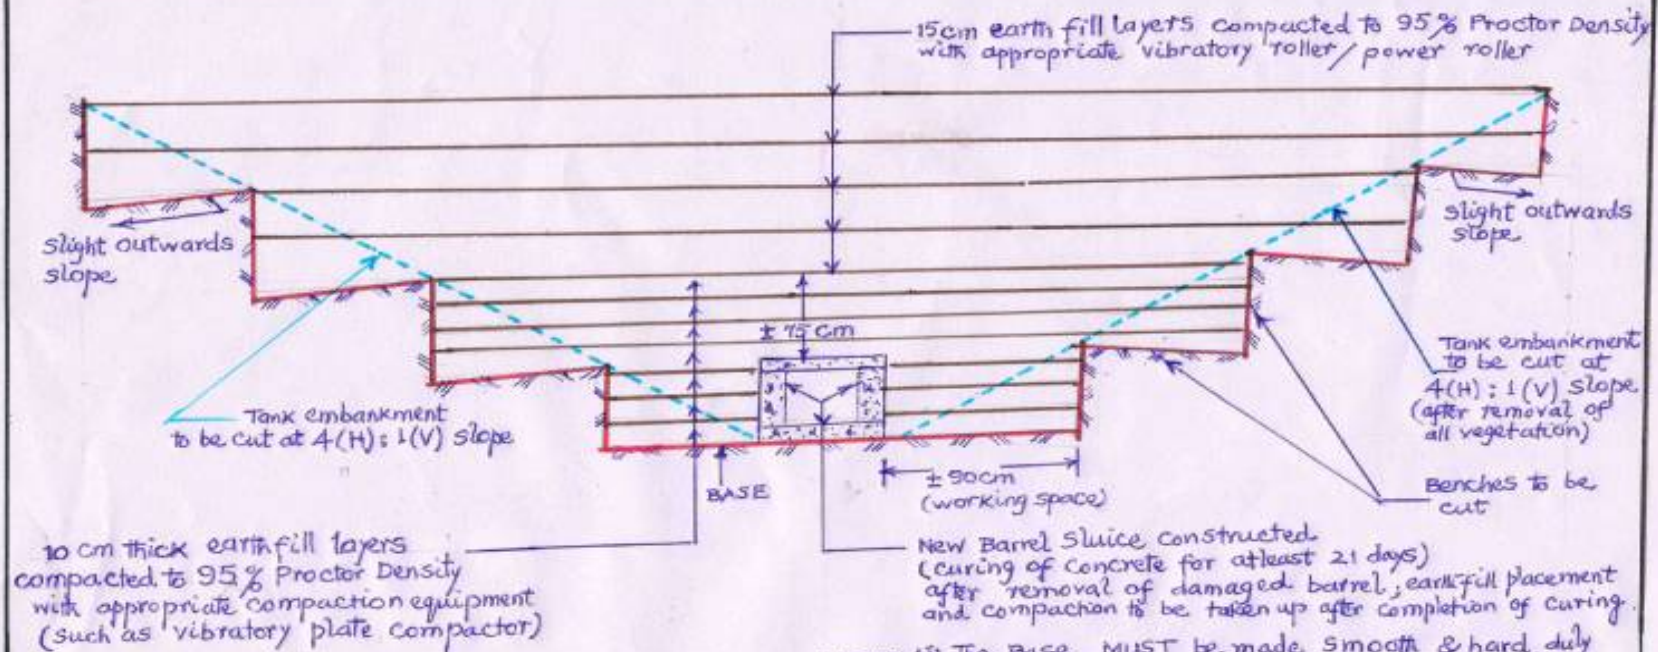 15cm earth fill layers compacted to 95% Proctor Density
with appropriate vibratory roller/power roller
Slight outwards
slope
Slight outwards
slope
± 75cm
Tank embankment
to be cut at 4(H):1(V) slope
Tank embankment
to be cut at
4(H):1(V) slope
(after removal of
all vegetation)
BASE
± 90cm
(working space)
Benches to be
cut
10 cm thick earthfill layers
compacted to 95% Proctor Density
with appropriate compaction equipment
(such as vibratory plate compactor)
New Barrel Sluice constructed
(curing of concrete for atleast 21 days)
after removal of damaged barrel; earthfill placement
and compaction to be taken up after completion of curing.
The BASE MUST be made smooth & hard duly